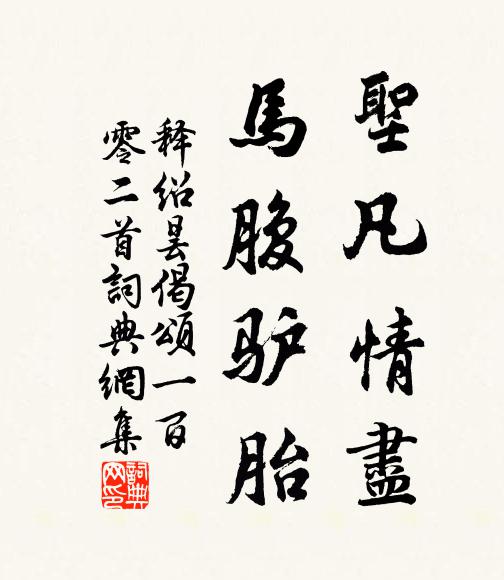 聖凡情盡
馬腹驴胎
释绍昙偈頌一百
零二首詞典網集
詞典网印